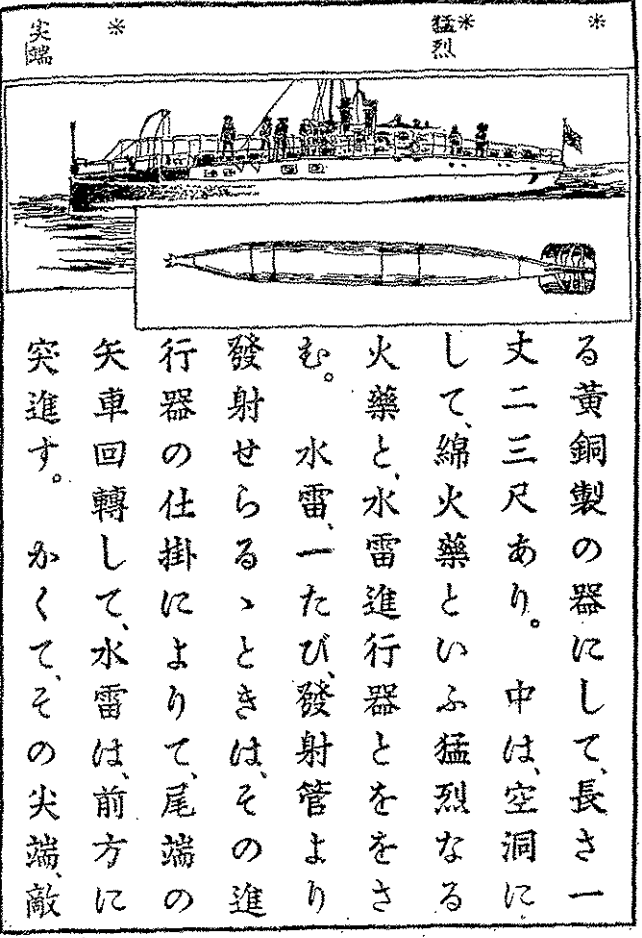 ＊
猛烈＊
＊
尖端
る黃銅製の器にして、長さ一
丈二三尺あり。　中は、空洞に
して、綿火藥といふ猛烈なる
火藥と、水雷進行器とををさ
む。　水雷、一たび、發射管より
發射せらるゝときは、その進
行器の仕掛によりて、尾端の
矢車回轉して、水雷は、前方に
突進す。　かくて、その尖端、敵